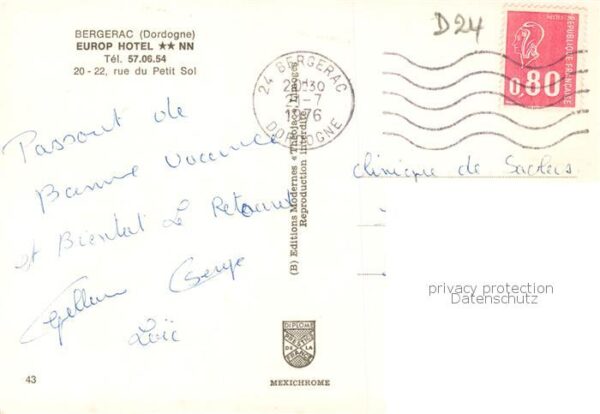 BERGERAC (Dordogne)
EUROP HOTEL ★★ NN
Tél. 57.06.54
20 - 22, rue du Petit Sol
D24
POSTES
REPUBLIQUE FRANCAISE
0,80
24 BERGERAC
20H30
-7
1976
DORDOGNE
Passont de
Bonne Vacance
et Bientot Le Retour
Serge
Loïc
clinique de
(B) Editions Modernes « Théojac » Limoges
Reproduction Interdite
privacy protection
Datenschutz
DIPLOME
PRESTIGE
DE LA
FRANCE
43
MEXICHROME